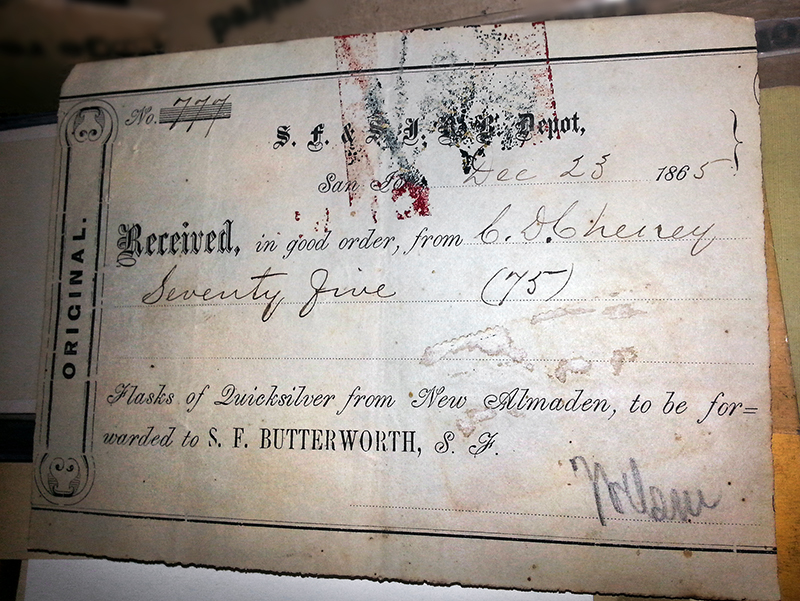 ORIGINAL.
No. 777
S. F. & S. J. R. R. Depot,
San Jose Dec 23 1865
Received, in good order, from C. D. Cheney
Seventy five (75)
Flasks of Quicksilver from New Almaden, to be for=
warded to S. F. BUTTERWORTH, S. F.